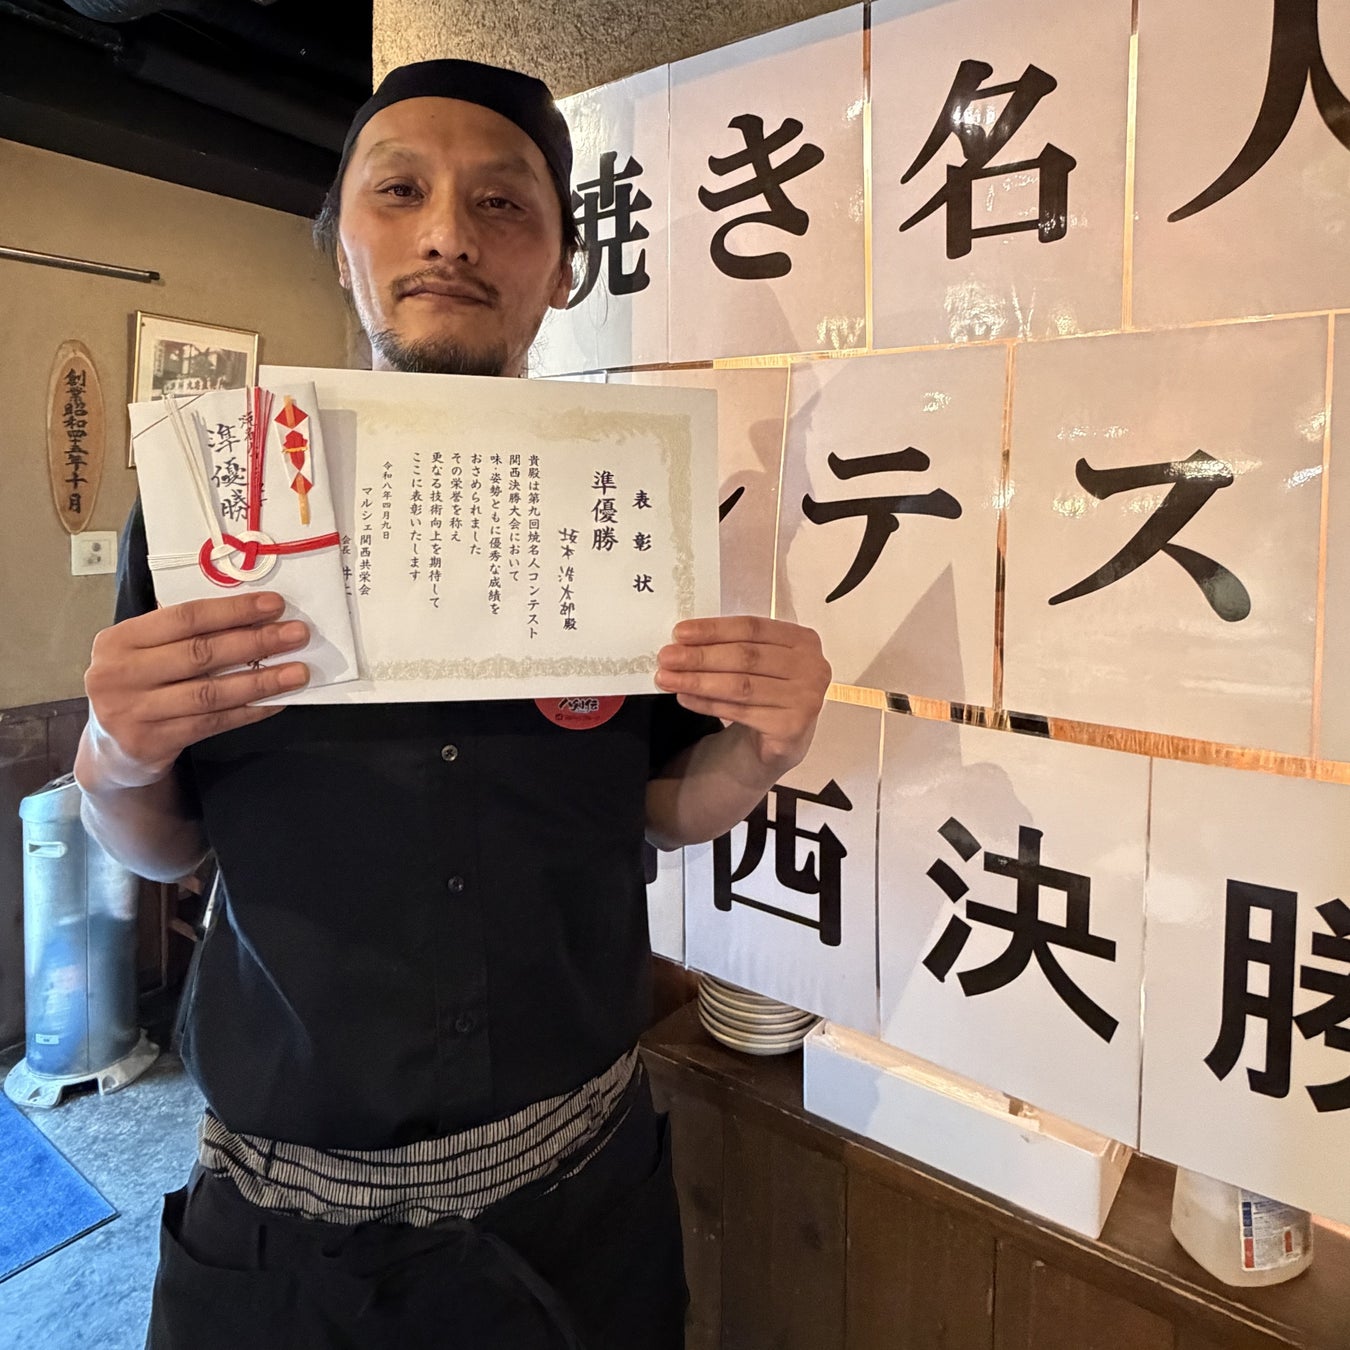 焼き名人
ンテス
西決勝
表彰状
準優勝
坂本浩太郎殿
貴殿は第九回焼名人コンテスト
関西決勝大会において
味・姿勢ともに優秀な成績を
おさめられました
その栄誉を称え
更なる技術向上を期待して
ここに表彰いたします
令和八年四月九日
マルシェ関西共栄会
会長 井上
準優勝
創業昭和四十五年十一月
八剣伝